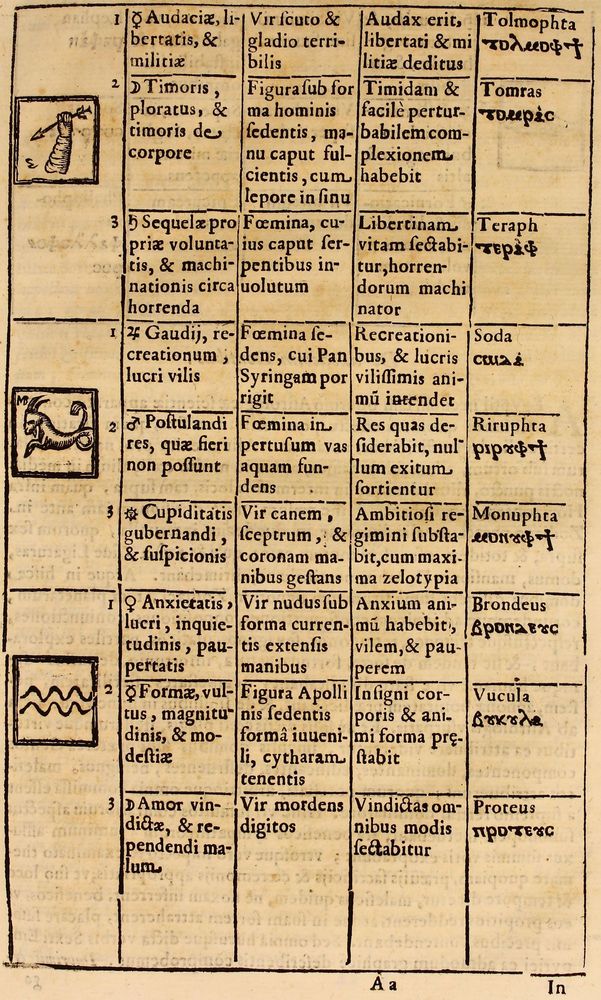 1
☿ Audaciæ, li-
bertatis, &
militiæ
Vir ſcuto &
gladio terri-
bilis
Audax erit,
libertati & mi
litiæ deditus
Tolmophta
ⲧⲟⲗⲙⲟⲫϯ
2
☽ Timoris,
ploratus, &
timoris de
corpore
Figura ſub for
ma hominis
ſedentis, ma-
nu caput ful-
cientis, cum
lepore in ſinu
Timidam &
facilè pertur-
babilem com-
plexionem
habebit
Tomras
ⲧⲟⲙⲣⲁ̀ⲥ
3
♄ Sequelæ pro
priæ volunta-
tis, & machi-
nationis circa
horrenda
Fœmina, cu-
ius caput ſer-
pentibus in-
uolutum
Libertinam
vitam ſectabi-
tur, horren-
dorum machi
nator
Teraph
ⲧⲉⲣⲁ̀ⲫ
1
♃ Gaudij, re-
creationum,
lucri vilis
Fœmina ſe-
dens, cui Pan
Syringam por
rigit
Recreationi-
bus, & lucris
viliſſimis ani-
mū intendet
Soda
2
♂ Poſtulandi
res, quæ fieri
non poſſunt
Fœmina in
pertuſum vas
aquam fun-
dens
Res quas de-
ſiderabit, nul-
lum exitum
ſortientur
Riruphta
ⲣⲓⲣⲩⲫϯ
3
☼ Cupiditatis
gubernandi,
& ſuſpicionis
Vir canem,
ſceptrum, &
coronam ma-
nibus geſtans
Ambitioſi re-
gimini ſubſta-
bit, cum maxi-
ma zelotypia
Monuphta
ⲙⲟⲛⲩⲫϯ
1
♀ Anxietatis,
lucri, inquie-
tudinis, pau-
pertatis
Vir nudus ſub
forma curren-
tis extenſis
manibus
Anxium ani-
mū habebit,
vilem, & pau-
perem
Brondeus
ⲃⲣⲟⲛⲇⲉⲩⲥ
2
☿ Formæ, vul-
tus, magnitu-
dinis, & mo-
deſtiæ
Figura Apolli
nis ſedentis
formâ iuueni-
li, cytharam
tenentis
Inſigni cor-
poris & ani-
mi forma prę-
ſtabit
Vucula
ⲃⲩⲕⲩⲗⲁ
3
☽ Amor vin-
dictæ, & re-
pendendi ma-
lum
Vir mordens
digitos
Vindictas om-
nibus modis
ſectabitur
Proteus
ⲡⲣⲟⲧⲉⲩⲥ
A a
In